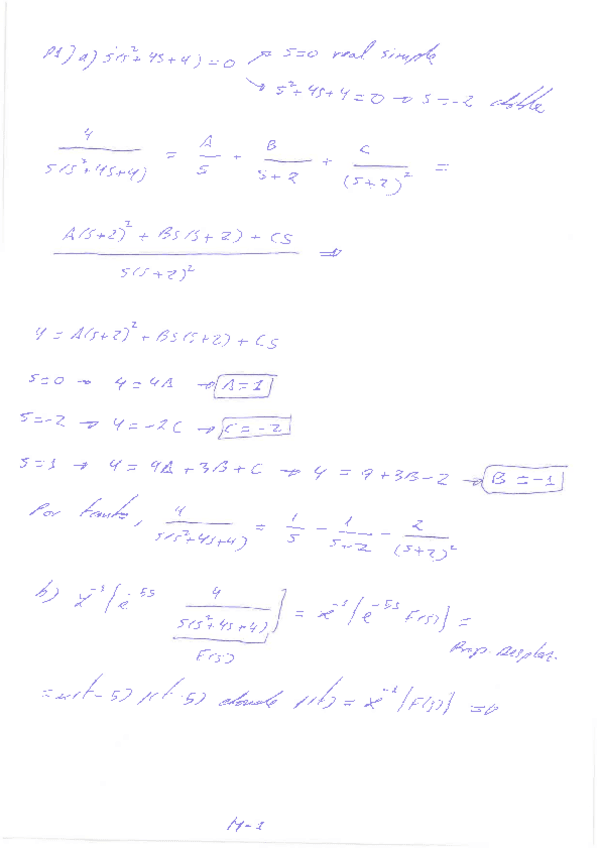 P1) a) s(s²+4s+4)=0 ↗ s=0 real simple
↘ s²+4s+4=0 → s=-2 doble
4/(s(s²+4s+4)) = A/s + B/(s+2) + C/(s+2)² =
(A(s+2)² + Bs(s+2) + Cs)/(s(s+2)²) ⇒
4 = A(s+2)² + Bs(s+2) + Cs
s=0 → 4=4A → A=1
s=-2 → 4=-2C → C=-2
s=1 → 4=9A+3B+C → 4=9+3B-2 → B=-1
Por tanto, 4/(s(s²+4s+4)) = 1/s - 1/(s+2) - 2/(s+2)²
b) ℒ⁻¹{e⁻⁵ˢ 4/(s(s²+4s+4))} = ℒ⁻¹{e⁻⁵ˢ F(s)} =
F(s)
Prop. Desplaz.
=u(t-5) f(t-5) donde f(t) = ℒ⁻¹{F(s)} ⇒
M-1